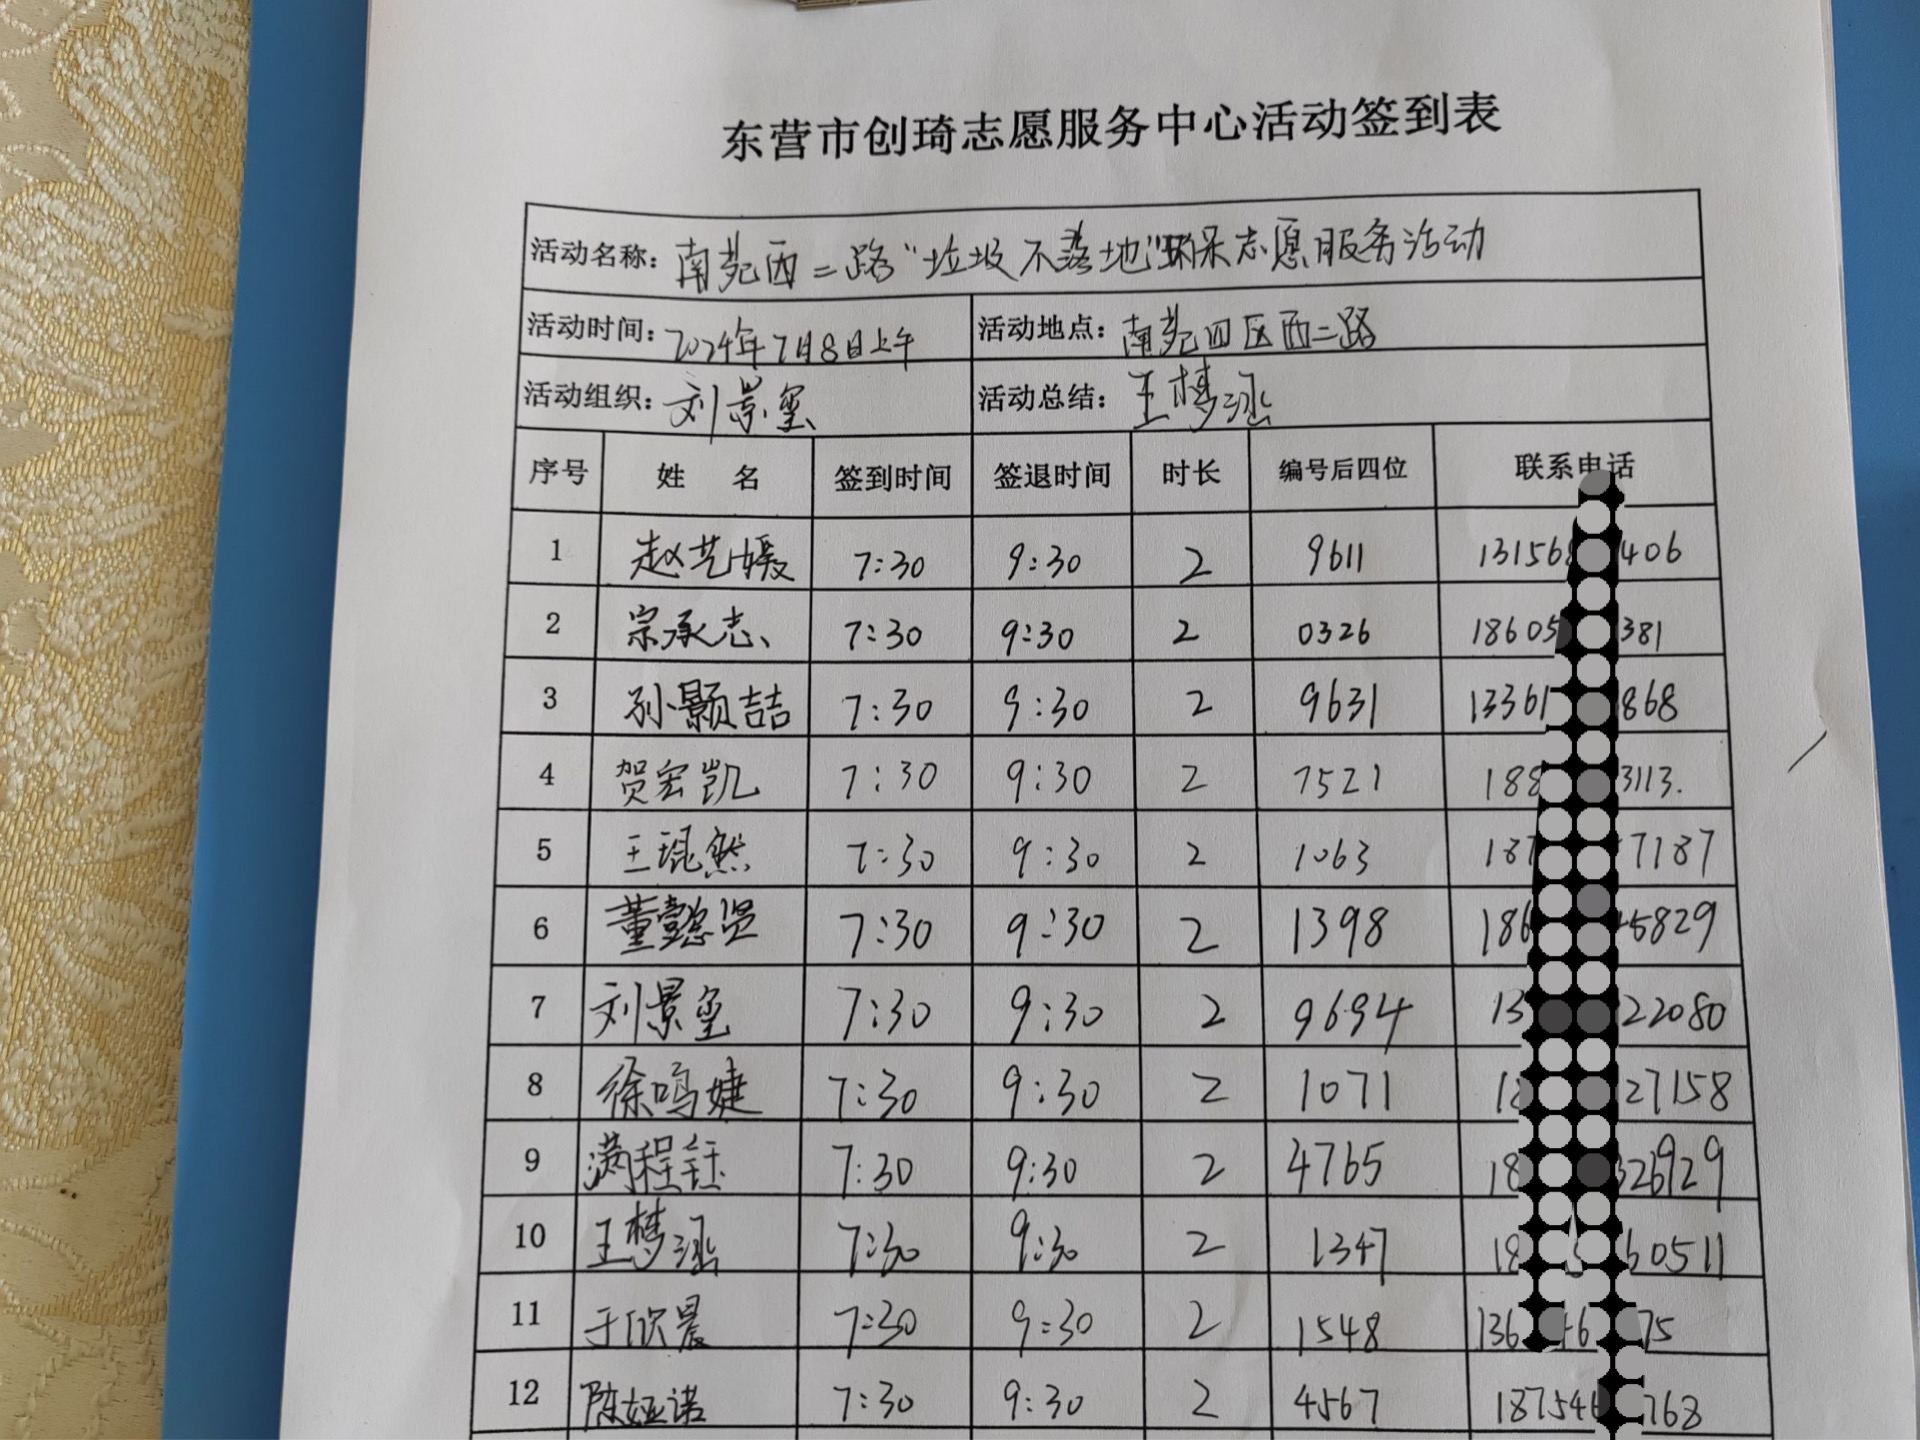 东营市创琦志愿服务中心活动签到表
活动名称：南苑西二路"垃圾不落地"环保志愿服务活动
活动时间：2024年7月8日上午 活动地点：南苑四区西二路
活动组织：刘景玺 活动总结：王梦涵
序号 姓 名 签到时间 签退时间 时长 编号后四位 联系电话
1 赵艺媛 7:30 9:30 2 9611 13156 406
2 宗承志 7:30 9:30 2 0326 18605 381
3 孙颢喆 7:30 9:30 2 9631 13361 868
4 贺宏凯 7:30 9:30 2 7521 188 3113.
5 王琨然 7:30 9:30 2 1063 187 7187
6 董懿贤 7:30 9:30 2 1398 186 5829
7 刘景玺 7:30 9:30 2 9694 13 22080
8 徐鸣婕 7:30 9:30 2 1071 18 27158
9 满程钰 7:30 9:30 2 4765 18 326929
10 王梦涵 7:30 9:30 2 1347 18 60511
11 于欣晨 7:30 9:30 2 1548 136 46 75
12 陈娅诺 7:30 9:30 2 4567 18754 768